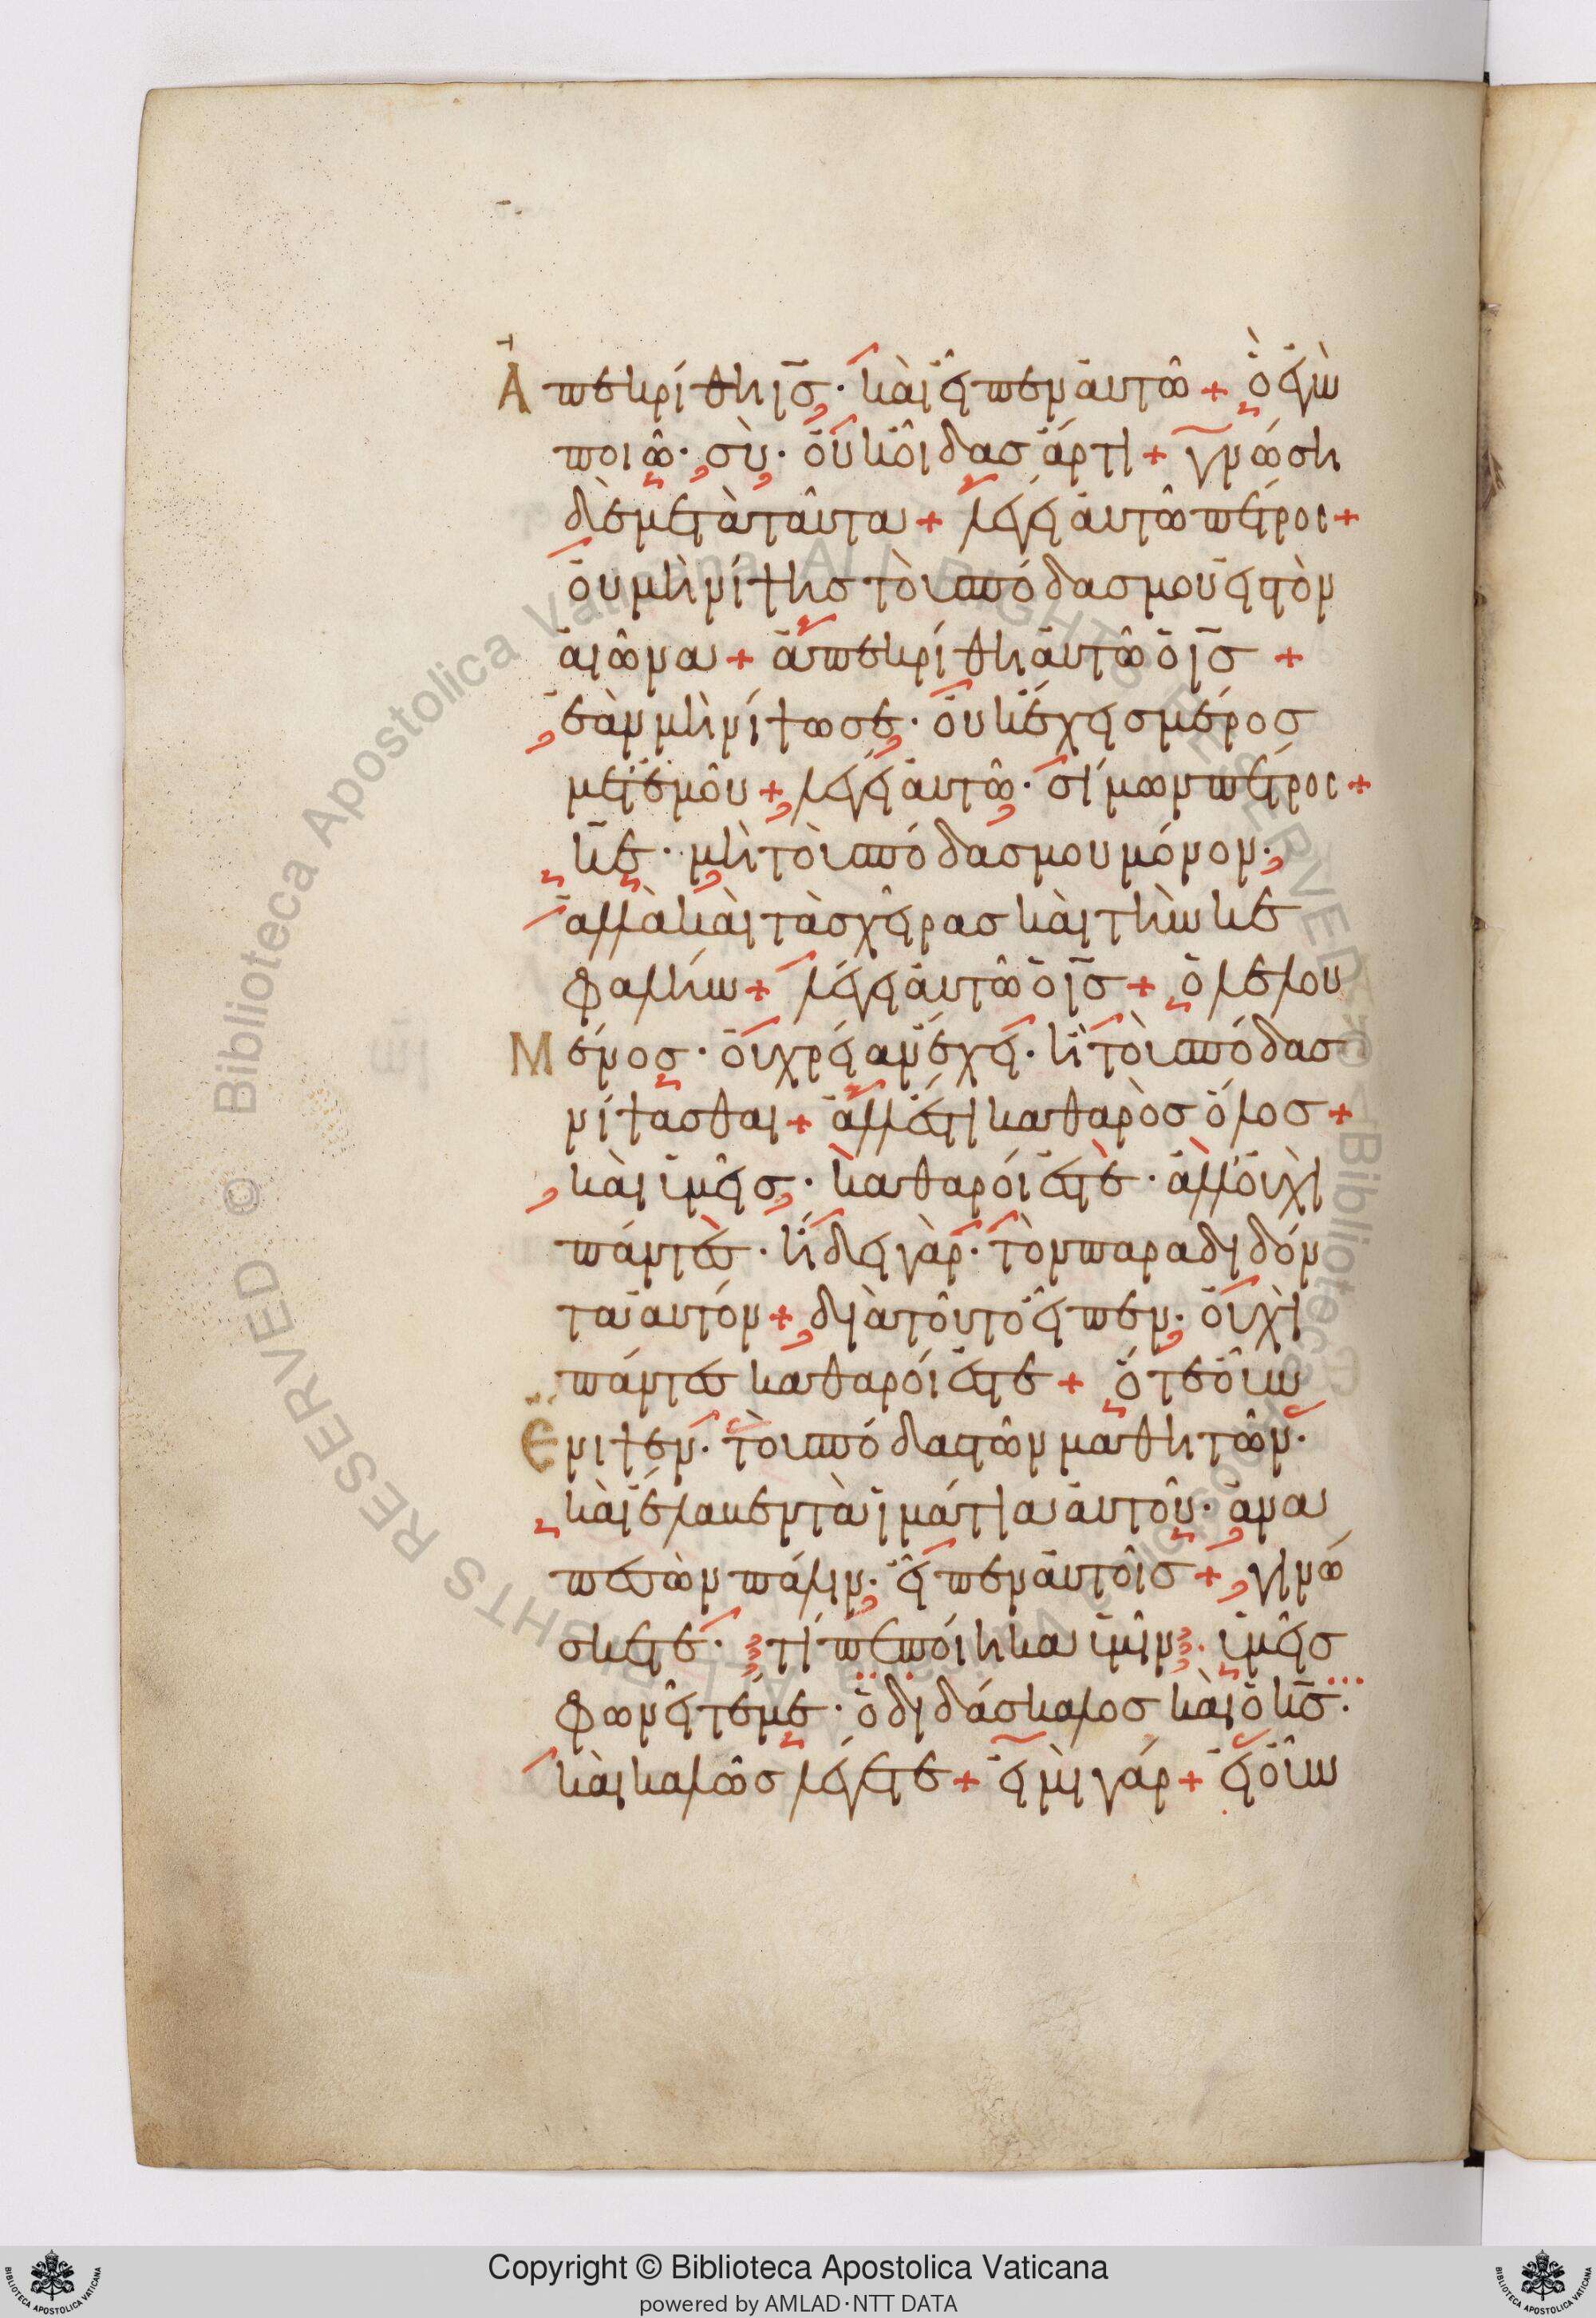 Ἀπεκρίθη ις̅· καὶ εἶπεν αὐτῶ + ὃ ἐγὼ
ποιῶ· σὺ· οὐκ οἶδας ἄρτι + γνώση
δὲ μετὰ ταῦτα + λέγει αὐτῶ πέτρος +
οὐ μὴ νίψης τοὺς πόδας μου εἰς τὸν
αἰῶνα + ἀπεκρίθη αὐτῶ ὁ ις̅ +
ἐὰν μὴ νίψω σε· οὐκ ἔχεις μέρος
μετ' ἐμοῦ + λέγει αὐτῶ· σίμων πέτρος +
κε̅· μὴ τοὺς πόδας μου μόνον·
ἀλλὰ καὶ τὰς χεῖρας καὶ τὴν κε
φαλήν + λέγει αὐτῶ ὁ ις̅ + ὁ λελου
Μένος· οὐ χρείαν ἔχει· ἢ τοὺς πόδας
νίψασθαι + ἀλλ' ἔστι καθαρὸς ὅλος +
καὶ ὑμεῖς· καθαροί ἐστε· ἀλλ' οὐχὶ
πάντες· ἤδει γὰρ· τὸν παραδιδόν
τα αὐτόν + διὰ τοῦτο εἶπεν· οὐχὶ
πάντες καθαροί ἐστε + ὅτε οὖν
Ἔνιψεν· τοὺς πόδας τῶν μαθητῶν·
καὶ ἔλαβεν τὰ ἱμάτια αὐτοῦ· ἀνα
πεσὼν πάλιν· εἶπεν αὐτοῖς + γινώ
σκετε· τί πεποίηκα ὑμῖν· ὑμεῖς
φωνεῖτέ με· ὁ διδάσκαλος καὶ ὁ κς̅·
καὶ καλῶς λέγετε + εἰμὶ γάρ + εἰ οὖν
Copyright © Biblioteca Apostolica Vaticana
powered by AMLAD·NTT DATA